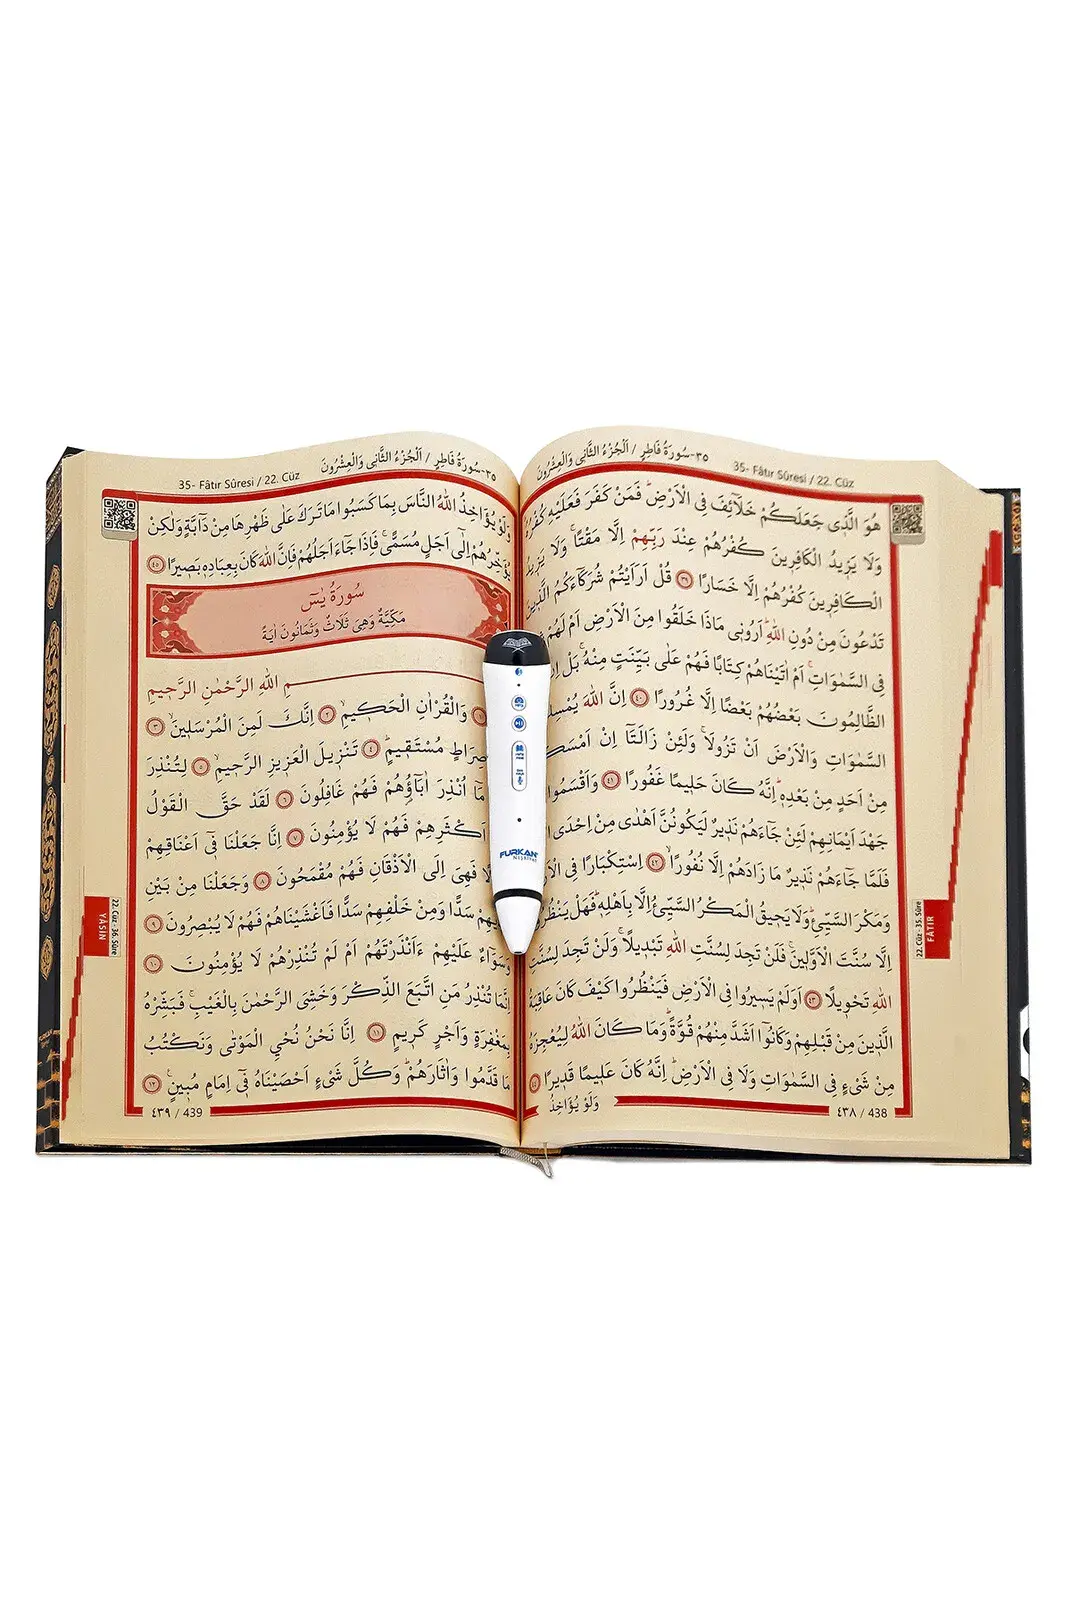 ٣٥-سُورَةُ فَاطِرٍ / اَلْجُزْءُ الثَّانِى وَالْعِشْرُونَ
35- Fâtır Sûresi / 22. Cüz
هُوَ الَّذ۪ي جَعَلَكُمْ خَلَٓائِفَ فِي الْاَرْضِۜ فَمَنْ كَفَرَ فَعَلَيْهِ كُفْرُهُ
وَلَا يَز۪يدُ الْكَافِر۪ينَ كُفْرُهُمْ عِنْدَ رَبِّهِمْ اِلَّا مَقْتًاۚ وَلَا يَز۪يدُ
الْكَافِر۪ينَ كُفْرُهُمْ اِلَّا خَسَارًا ٣٩ قُلْ اَرَاَيْتُمْ شُرَكَٓاءَكُمُ الَّذ۪ينَ
تَدْعُونَ مِنْ دُونِ اللّٰهِۜ اَرُون۪ي مَاذَا خَلَقُوا مِنَ الْاَرْضِ اَمْ لَهُمْ
فِي السَّمٰوَاتِۚ اَمْ اٰتَيْنَاهُمْ كِتَابًا فَهُمْ عَلٰى بَيِّنَتٍ مِنْهُۚ بَلْ اِنْ
الظَّالِمُونَ بَعْضُهُمْ بَعْضًا اِلَّا غُرُورًا ٤٠ اِنَّ اللّٰهَ
السَّمٰوَاتِ وَالْاَرْضَ اَنْ تَزُولَاۚ وَلَئِنْ زَالَتَٓا اِنْ
مِنْ اَحَدٍ مِنْ بَعْدِه۪ۜ اِنَّهُ كَانَ حَل۪يمًا غَفُورًا ٤١ وَاَقْسَمُوا
جَهْدَ اَيْمَانِهِمْ لَئِنْ جَٓاءَهُمْ نَذ۪يرٌ لَيَكُونُنَّ اَهْدٰى مِنْ اِحْدَى
فَلَمَّا جَٓاءَهُمْ نَذ۪يرٌ مَا زَادَهُمْ اِلَّا نُفُورًاۙ ٤٢ اِسْتِكْبَارًا فِي
وَمَكْرَ السَّيِّئِۜ وَلَا يَح۪يقُ الْمَكْرُ السَّيِّئُ اِلَّا بِاَهْلِه۪ۜ فَهَلْ
اِلَّا سُنَّتَ الْاَوَّل۪ينَۚ فَلَنْ تَجِدَ لِسُنَّتِ اللّٰهِ تَبْد۪يلًاۚ وَلَنْ تَجِدَ لِسُنَّتِ
اللّٰهِ تَحْو۪يلًا ٤٣ اَوَلَمْ يَس۪يرُوا فِي الْاَرْضِ فَيَنْظُرُوا كَيْفَ كَانَ عَاقِبَةُ
الَّذ۪ينَ مِنْ قَبْلِهِمْ وَكَانُٓوا اَشَدَّ مِنْهُمْ قُوَّةًۜ وَمَا كَانَ اللّٰهُ لِيُعْجِزَهُ
مِنْ شَيْءٍ فِي السَّمٰوَاتِ وَلَا فِي الْاَرْضِۜ اِنَّهُ كَانَ عَل۪يمًا قَد۪يرًا ٤٤
وَلَوْ يُؤَاخِذُ
٤٣٨ / 438
22. Cüz - 35. Sûre
FÂTIR
٣٥-سُورَةُ فَاطِرٍ / اَلْجُزْءُ الثَّانِى وَالْعِشْرُونَ
35- Fâtır Sûresi / 22. Cüz
وَلَوْ يُؤَاخِذُ اللّٰهُ النَّاسَ بِمَا كَسَبُوا مَا تَرَكَ عَلٰى ظَهْرِهَا مِنْ دَٓابَّةٍ وَلٰكِنْ
يُؤَخِّرُهُمْ اِلٰٓى اَجَلٍ مُسَمًّىۚ فَاِذَا جَٓاءَ اَجَلُهُمْ فَاِنَّ اللّٰهَ كَانَ بِعِبَادِه۪ بَص۪يرًا ٤٥
سُورَةُ يٰسٓ
مَكِّيَّةٌ وَهِيَ ثَلَاثٌ وَثَمَانُونَ اٰيَةً
مِ اللّٰهِ الرَّحْمٰنِ الرَّح۪يمِ
وَالْقُرْاٰنِ الْحَك۪يمِۙ ٢ اِنَّكَ لَمِنَ الْمُرْسَل۪ينَۙ ٣
صِرَاطٍ مُسْتَق۪يمٍۜ ٤ تَنْز۪يلَ الْعَز۪يزِ الرَّح۪يمِۙ ٥ لِتُنْذِرَ
مَٓا اُنْذِرَ اٰبَٓاؤُهُمْ فَهُمْ غَافِلُونَ ٦ لَقَدْ حَقَّ الْقَوْلُ
اَكْثَرِهِمْ فَهُمْ لَا يُؤْمِنُونَ ٧ اِنَّا جَعَلْنَا ف۪ٓي اَعْنَاقِهِمْ
فَهِيَ اِلَى الْاَذْقَانِ فَهُمْ مُقْمَحُونَ ٨ وَجَعَلْنَا مِنْ بَيْنِ
سَدًّا وَمِنْ خَلْفِهِمْ سَدًّا فَاَغْشَيْنَاهُمْ فَهُمْ لَا يُبْصِرُونَ ٩
وَسَوَٓاءٌ عَلَيْهِمْ ءَاَنْذَرْتَهُمْ اَمْ لَمْ تُنْذِرْهُمْ لَا يُؤْمِنُونَ ١٠
اِنَّمَا تُنْذِرُ مَنِ اتَّبَعَ الذِّكْرَ وَخَشِيَ الرَّحْمٰنَ بِالْغَيْبِۚ فَبَشِّرْهُ
بِمَغْفِرَةٍ وَاَجْرٍ كَر۪يمٍ ١١ اِنَّا نَحْنُ نُحْيِ الْمَوْتٰى وَنَكْتُبُ
مَا قَدَّمُوا وَاٰثَارَهُمْۜ وَكُلَّ شَيْءٍ اَحْصَيْنَاهُ ف۪ٓي اِمَامٍ مُب۪ينٍ۟ ١٢
٤٣٩ / 439
22. Cüz - 36. Sûre
YÂSİN
FURKAN
NEŞRİYAT